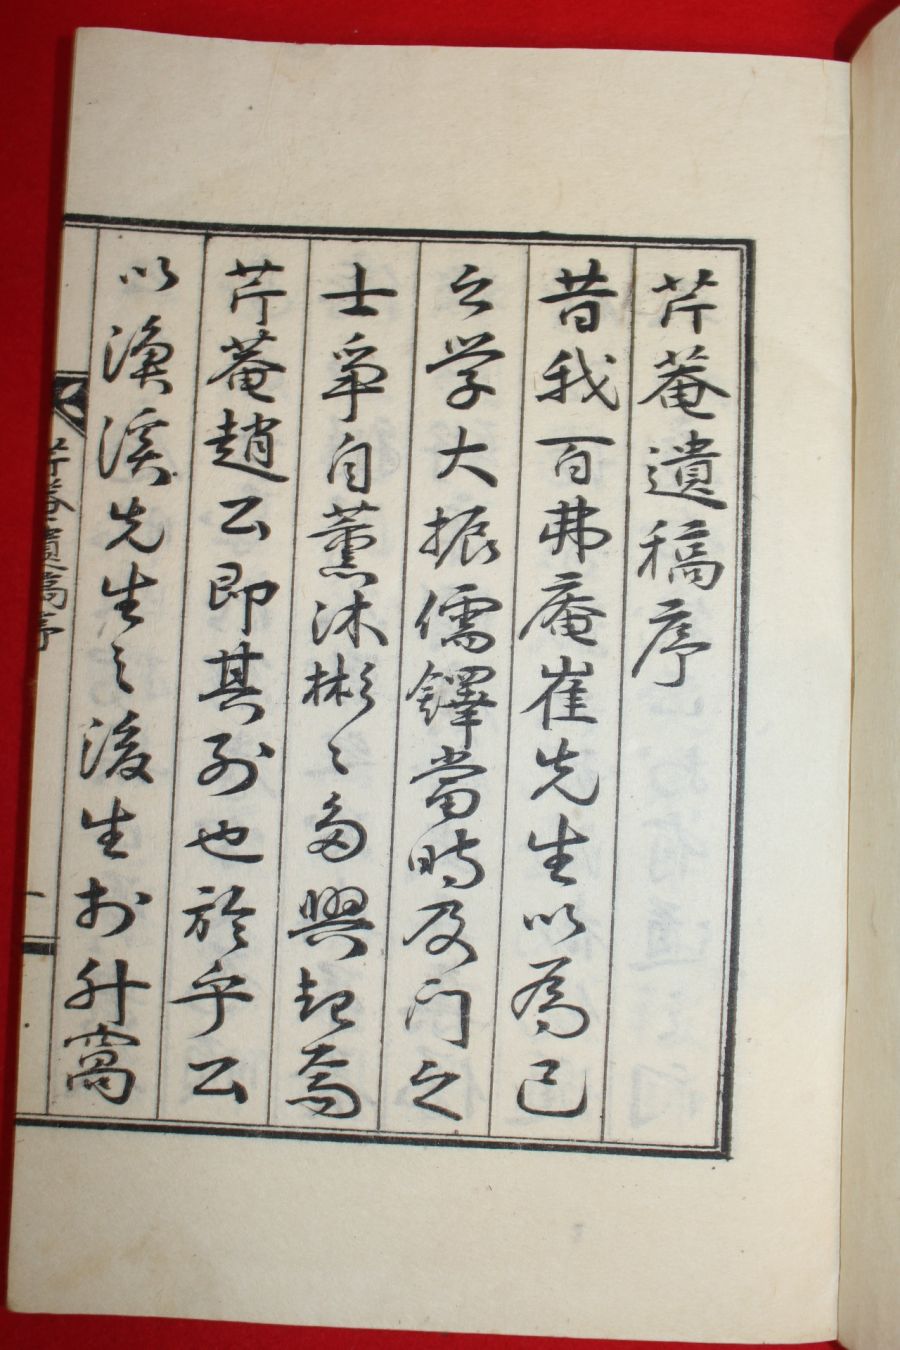 芹菴遺稿序
昔我百弗庵崔先生以爲己
之学大振儒鐸當時及門之
士爭自薰沐彬〻多興起焉
芹菴趙公即其列也於乎公
以漁溪先生之後生於升窩
芹菴遺稿序
一